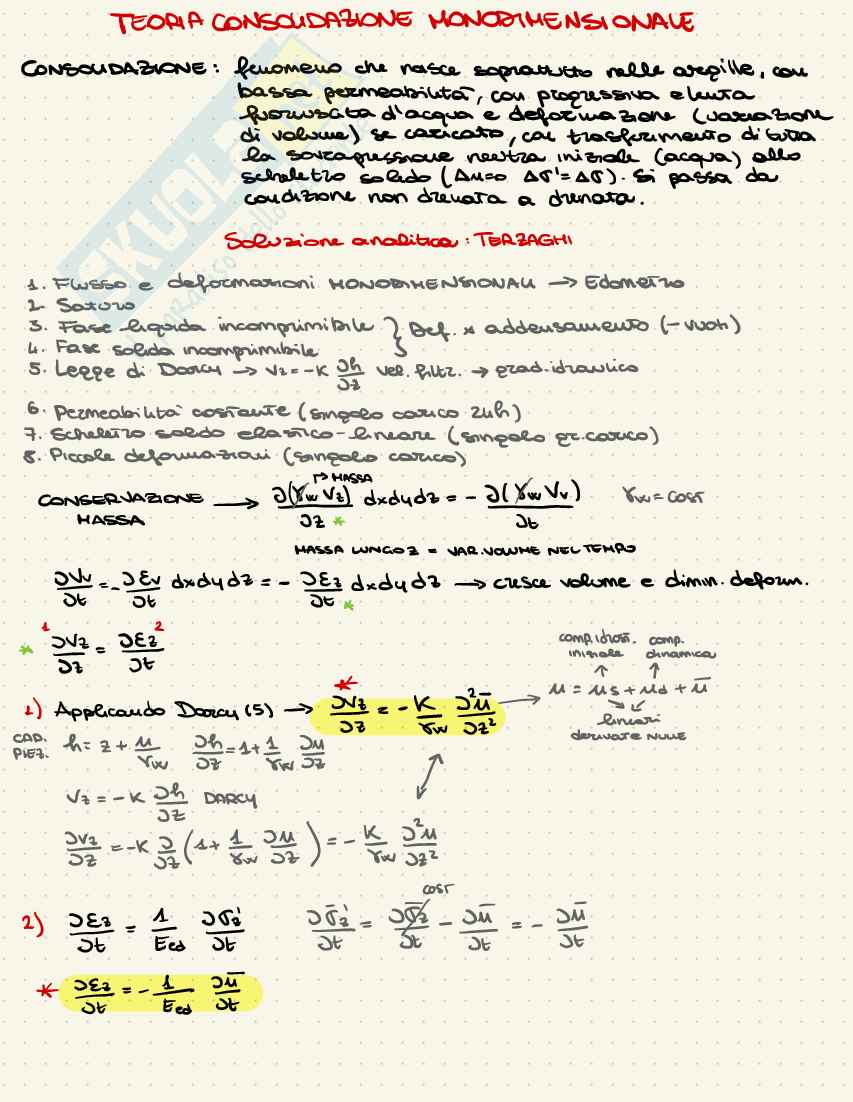 TEORIA CONSOLIDAZIONE MONODIMENSIONALE
CONSOLIDAZIONE: fenomeno che nasce soprattutto nelle argille, con
bassa permeabilità, con progressiva e lenta
fuoriuscita d'acqua e deformazione (variazione
di volume) se caricato, con trasferimento di tutta
la sovrapressione neutra iniziale (acqua) allo
scheletro solido (Δu=0 Δσ'=Δσ). Si passa da
condizione non drenata a drenata.
Soluzione analitica: TERZAGHI
1. Flusso e deformazioni MONODIMENSIONALI → Edometro
2. Saturo
3. Fase liquida incomprimibile } Def. x addensamento (- vuoti)
4. Fase solida incomprimibile
5. Legge di Darcy → Vz = -K ∂h/∂z vel. filtr. → grad. idraulico
6. Permeabilità costante (singolo carico 24h)
7. Scheletro solido elastico-lineare (singolo gr. carico)
8. Piccole deformazioni (singolo carico)
↱ MASSA
CONSERVAZIONE MASSA → ∂(γw Vz)/∂z * dxdydz = - ∂(γw Vv)/∂t γw = COST
MASSA LUNGO Z = VAR. VOLUME NEL TEMPO
∂Vv/∂t = - ∂εv/∂t dxdydz = - ∂εz/∂t * dxdydz → cresce volume e dimin. deform.
* 1 ∂Vz/∂z = ∂εz/∂t 2
comp. idrost. iniziale comp. dinamica
1) Applicando Darcy (5) → * ∂Vz/∂z = - K/γw ∂²ū/∂z² → u = us + ud + ū
lineari
derivate NULLE
CAR. PIEZ. h = z + u/γw ∂h/∂z = 1 + 1/γw ∂u/∂z
Vz = -K ∂h/∂z DARCY
∂Vz/∂z = -K ∂/∂z (1 + 1/γw ∂u/∂z) = - K/γw ∂²u/∂z²
COST
2) ∂εz/∂t = 1/Eed ∂σz'/∂t ∂σ̄z'/∂t = ∂σ̄z/∂t - ∂ū/∂t = - ∂ū/∂t
* ∂εz/∂t = - 1/Eed ∂ū/∂t
SKUOLA